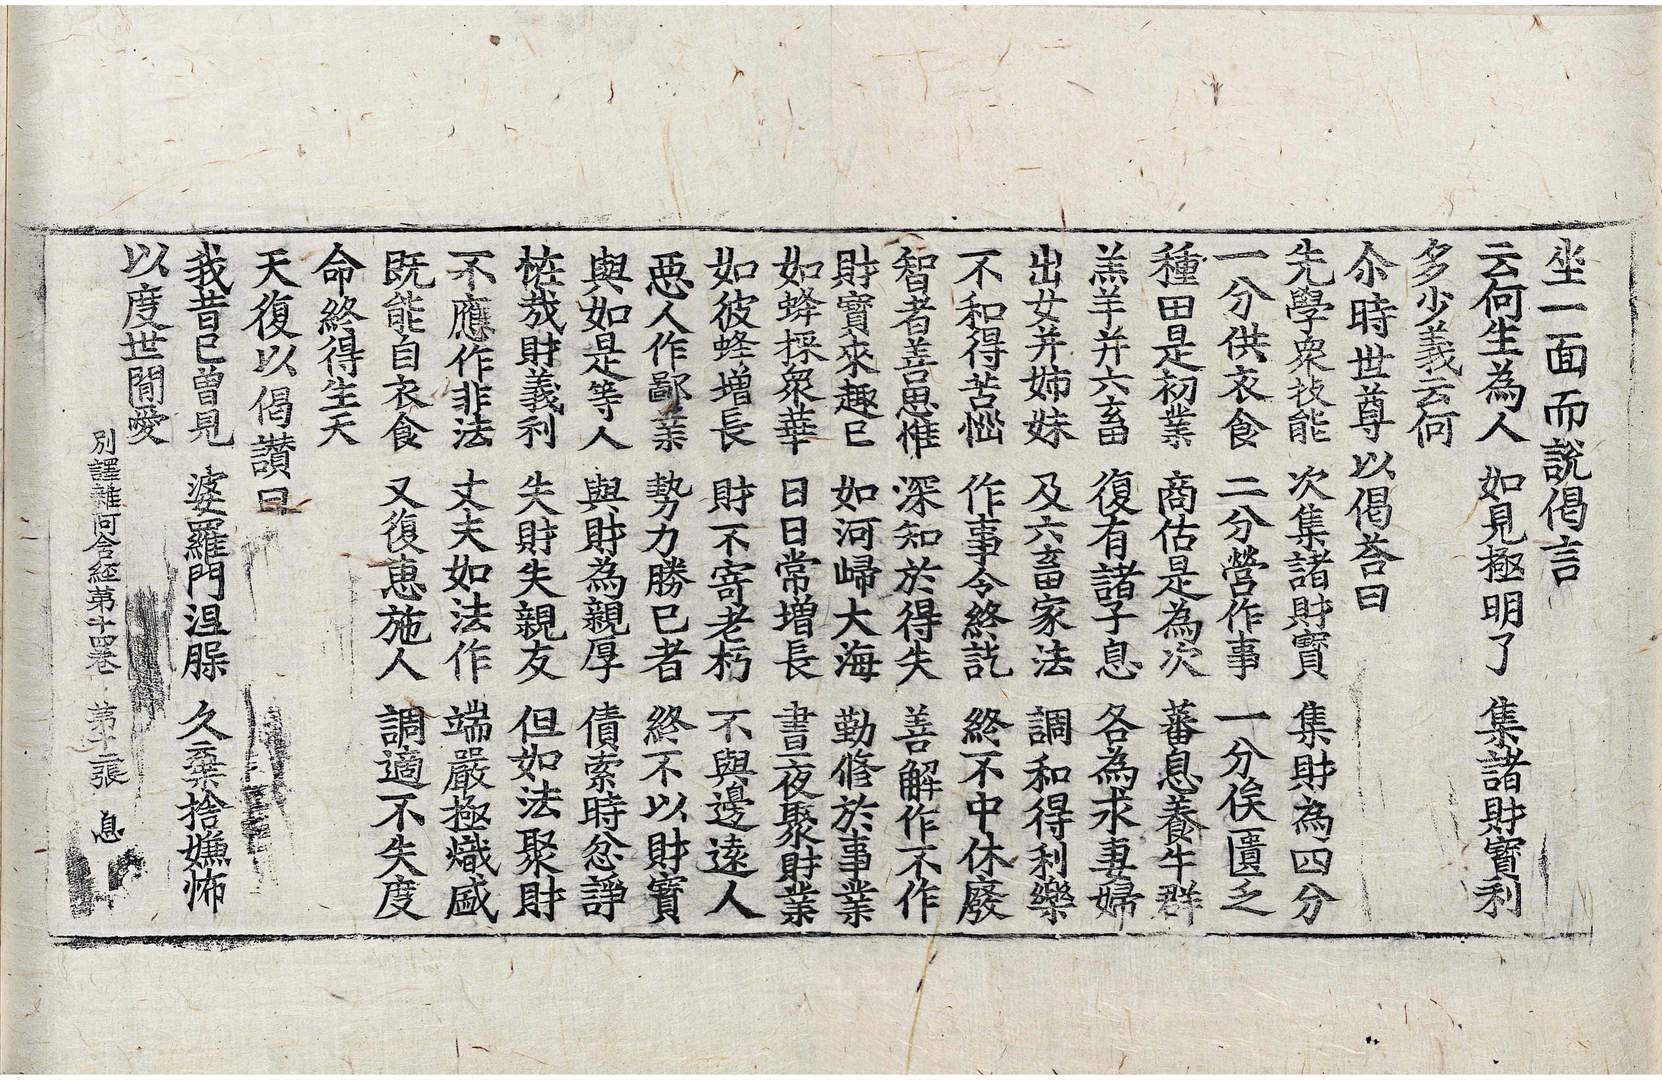 坐一面而說偈言
云何生為人　如見極明了　集諸財寶利
多少義云何
尒時世尊以偈荅曰
先學衆技能　次集諸財寶　集財為四分
一分供衣食　二分營作事　一分俟匱乏
種田是初業　商估是為次　蕃息養牛群
羔羊并六畜　復有諸子息　各為求妻婦
出女并姉妹　及六畜家法　調和得利樂
不和得苦惱　作事令終訖　終不中休廢
智者善思惟　深知於得失　善解作不作
財寶來趣己　如河歸大海　勤修於事業
如蜂採衆華　日日常增長　晝夜聚財業
如彼蜂增長　財不寄老朽　不與邊遠人
惡人作鄙業　勢力勝己者　終不以財寶
與如是等人　與財為親厚　債索時忿諍
恠哉財義利　失財失親友　但如法聚財
不應作非法　丈夫如法作　端嚴極熾盛
既能自衣食　又復惠施人　調適不失度
命終得生天
天復以偈讃曰
我昔已曾見　婆羅門涅槃　久棄捨嫌怖
以度世閒愛
別譯雜阿含經第十四卷　第十二張　息